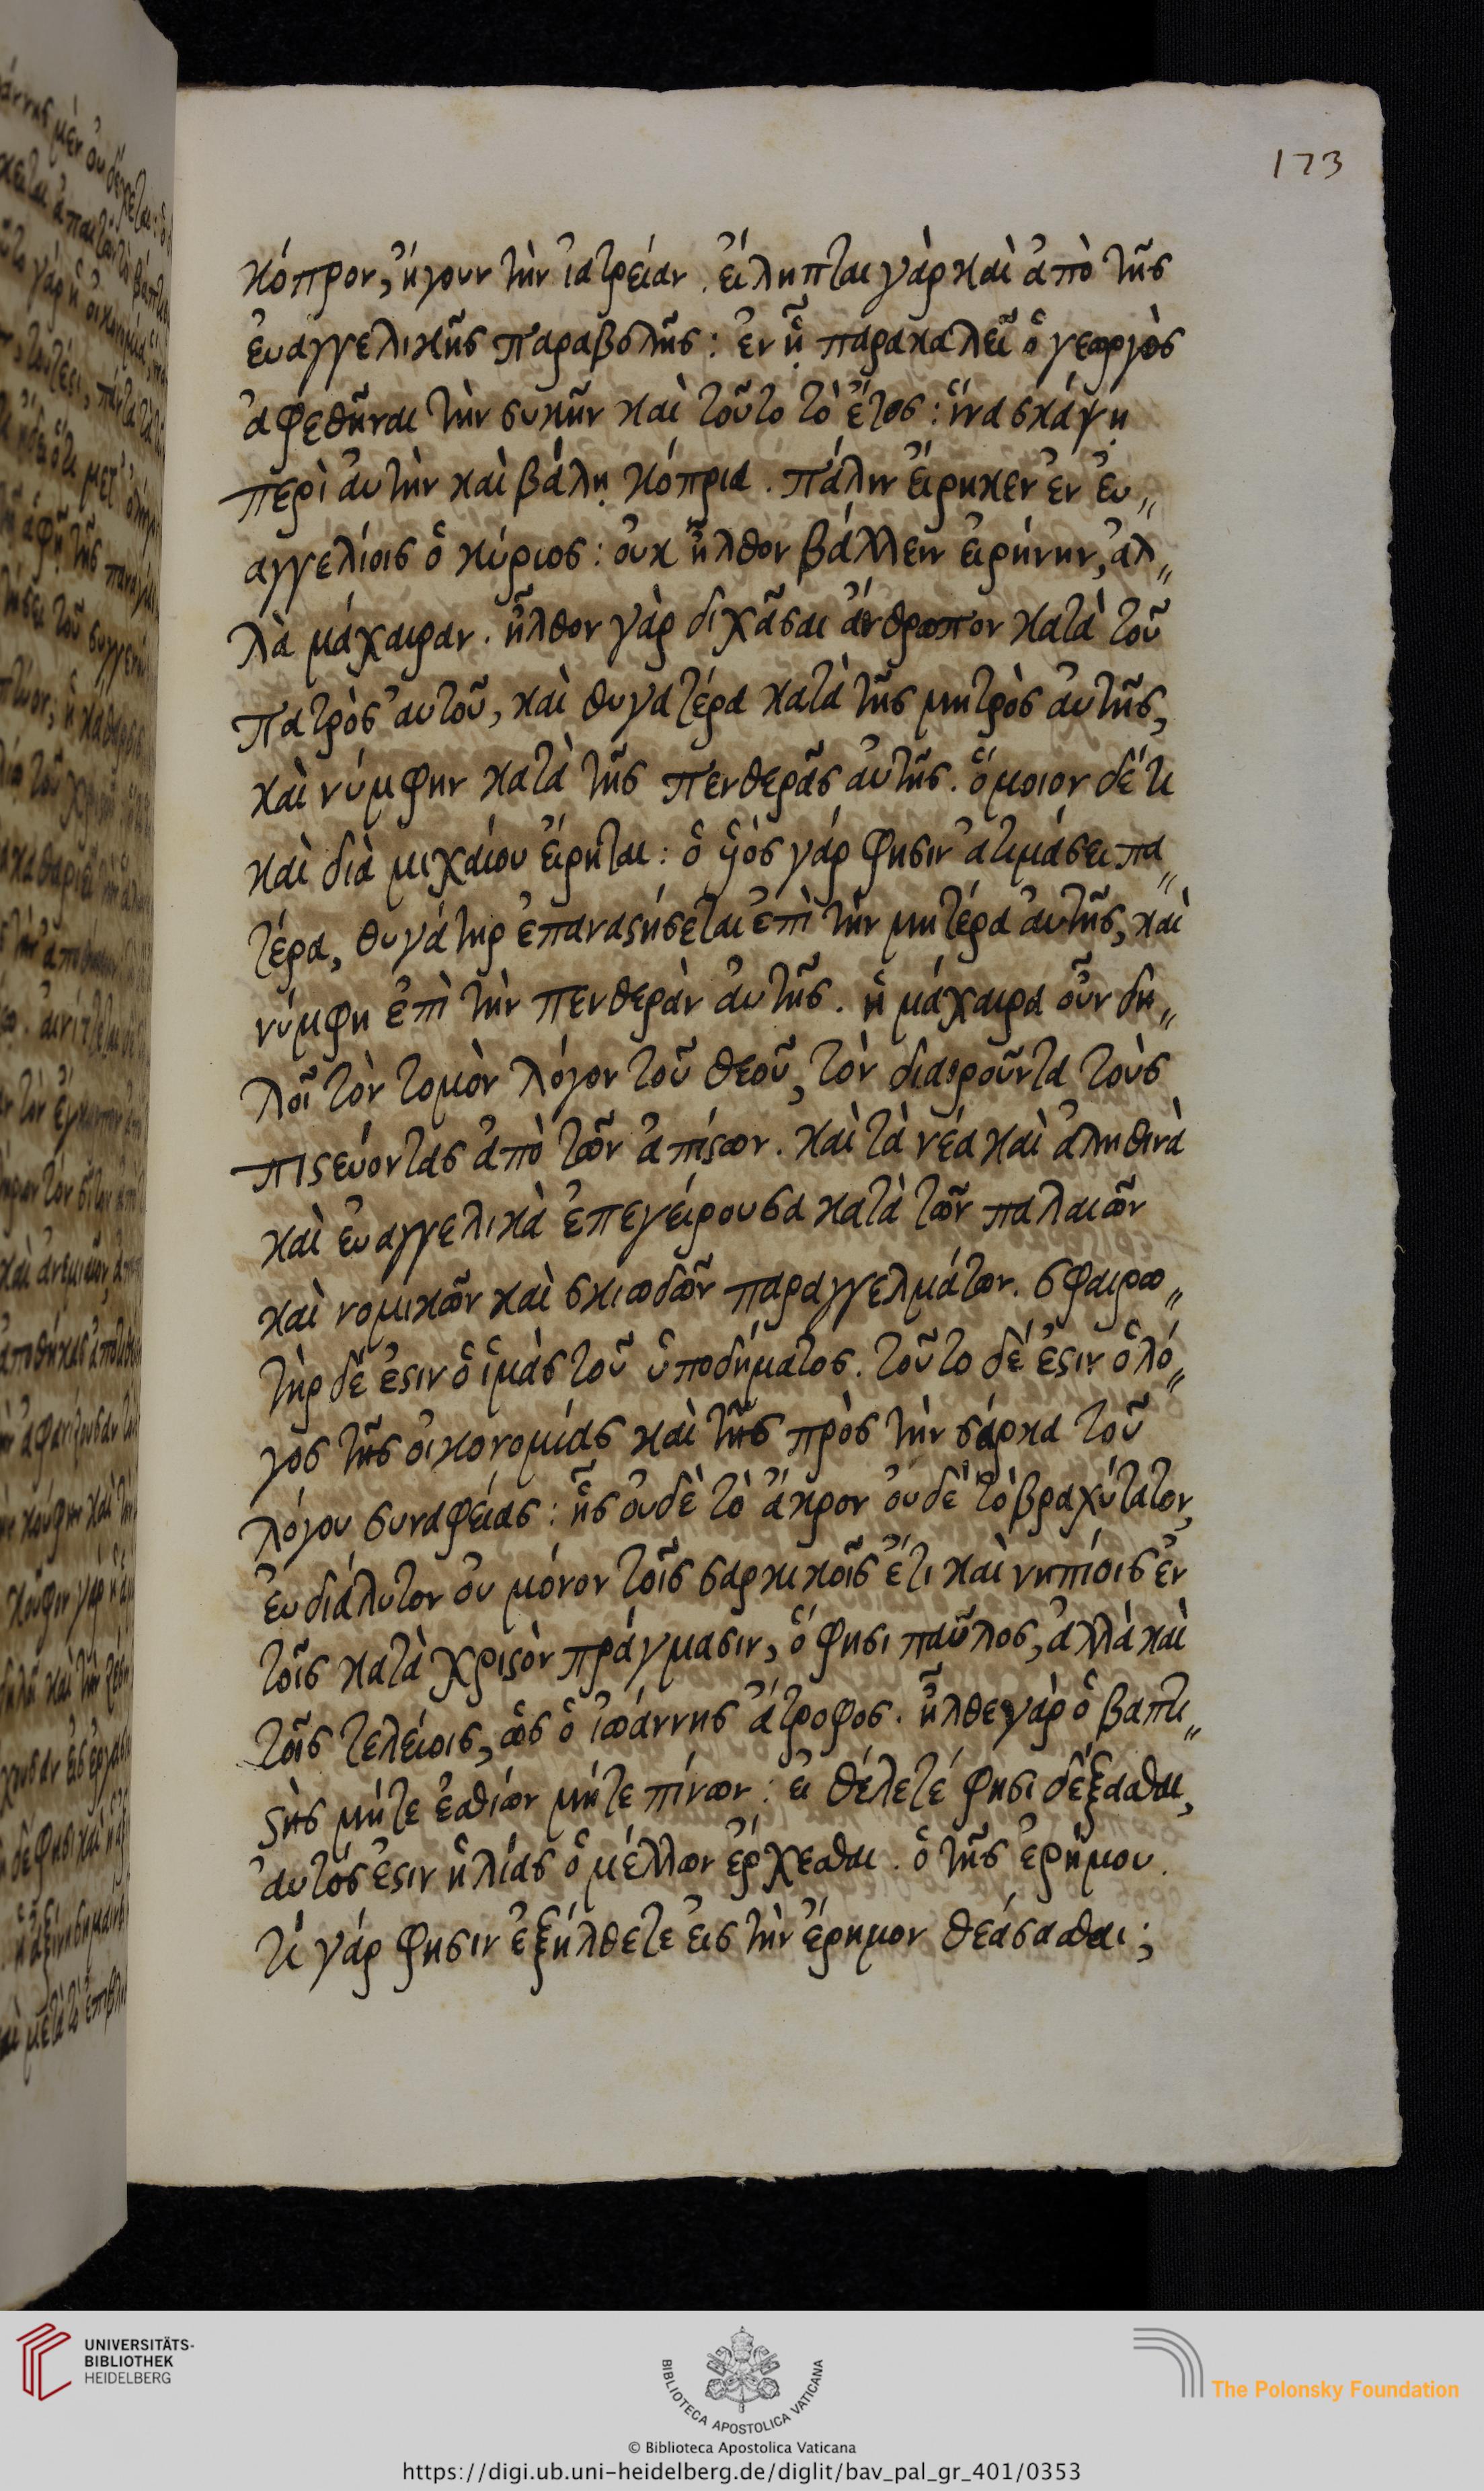 173
κόπρον, ἤγουν τὴν ἰατρείαν. εἴληπται γὰρ καὶ ἀπὸ τῆς
εὐαγγελικῆς παραβολῆς: ἐν ᾗ παρακαλεῖ ὁ γεωργὸς
ἀφεθῆναι τὴν συκῆν καὶ τοῦτο τὸ ἔτος: ἵνα σκάψῃ
περὶ αὐτὴν καὶ βάλῃ κόπρια. πάλιν εἴρηκεν ἐν εὐ„
αγγελίοις ὁ κύριος: οὐκ ἦλθον βάλλειν εἰρήνην, ἀλ„
λὰ μάχαιραν. ἦλθον γὰρ διχᾶσαι ἄνθρωπον κατὰ τοῦ
πατρὸς αὐτοῦ, καὶ θυγατέρα κατὰ τῆς μητρὸς αὐτῆς,
καὶ νύμφην κατὰ τῆς πενθερᾶς αὐτῆς. ὅμοιον δέ τι
καὶ διὰ μιχαίου εἴρηται: ὁ ὑϊὸς γάρ φησιν ἀτιμάσει πα„
τέρα, θυγάτηρ ἐπαναϛήσεται ἐπὶ τὴν μητέρα αὐτῆς, καὶ
νύμφη ἐπὶ τὴν πενθερὰν αὐτῆς. ἡ μάχαιρα οὖν δη„
λοῖ τὸν τομὸν λόγον τοῦ θεοῦ, τὸν διαιροῦντα τοὺς
πιϛεύοντας ἀπὸ τῶν ἀπίϛων. καὶ τὰ νέα καὶ ἀληθινὰ
καὶ εὐαγγελικὰ ἐπεγείρουσα κατὰ τῶν παλαιῶν
καὶ νομικῶν καὶ σκιωδῶν παραγγελμάτων. σφαιρω„
τὴρ δέ ἐϛιν ὁ ἱμὰς τοῦ ὑποδήματος. τοῦτο δέ ἐϛιν ὁ λό„
γος τῆς οἰκονομίας καὶ τῆς πρὸς τὴν σάρκα τοῦ
λόγου συναφείας: ἧς οὐδὲ τὸ ἄκρον οὐδὲ τὸ βραχύτατον,
εὐδιάλυτον οὐ μόνον τοῖς σαρκικοῖς ἔτι καὶ νηπίοις ἐν
τοῖς κατὰ χριϛὸν πράγμασιν, ὅ φησι παῦλος, ἀλλὰ καὶ
τοῖς τελείοις, ὡς ὁ ἰωάννης ἄτροφος. ἦλθε γὰρ ὁ βαπτι„
ϛὴς μήτε ἐσθίων μήτε πίνων: εἰ θέλετέ φησι δέξασθαι,
αὐτός ἐϛιν ἠλίας ὁ μέλλων ἔρχεσθαι. ὁ τῆς ἐρήμου.
τί γάρ φησιν ἐξήλθετε εἰς τὴν ἔρημον θεάσασθαι;
UNIVERSITÄTS-
BIBLIOTHEK
HEIDELBERG
BIBLIOTECA APOSTOLICA VATICANA
The Polonsky Foundation
© Biblioteca Apostolica Vaticana
https://digi.ub.uni-heidelberg.de/diglit/bav_pal_gr_401/0353